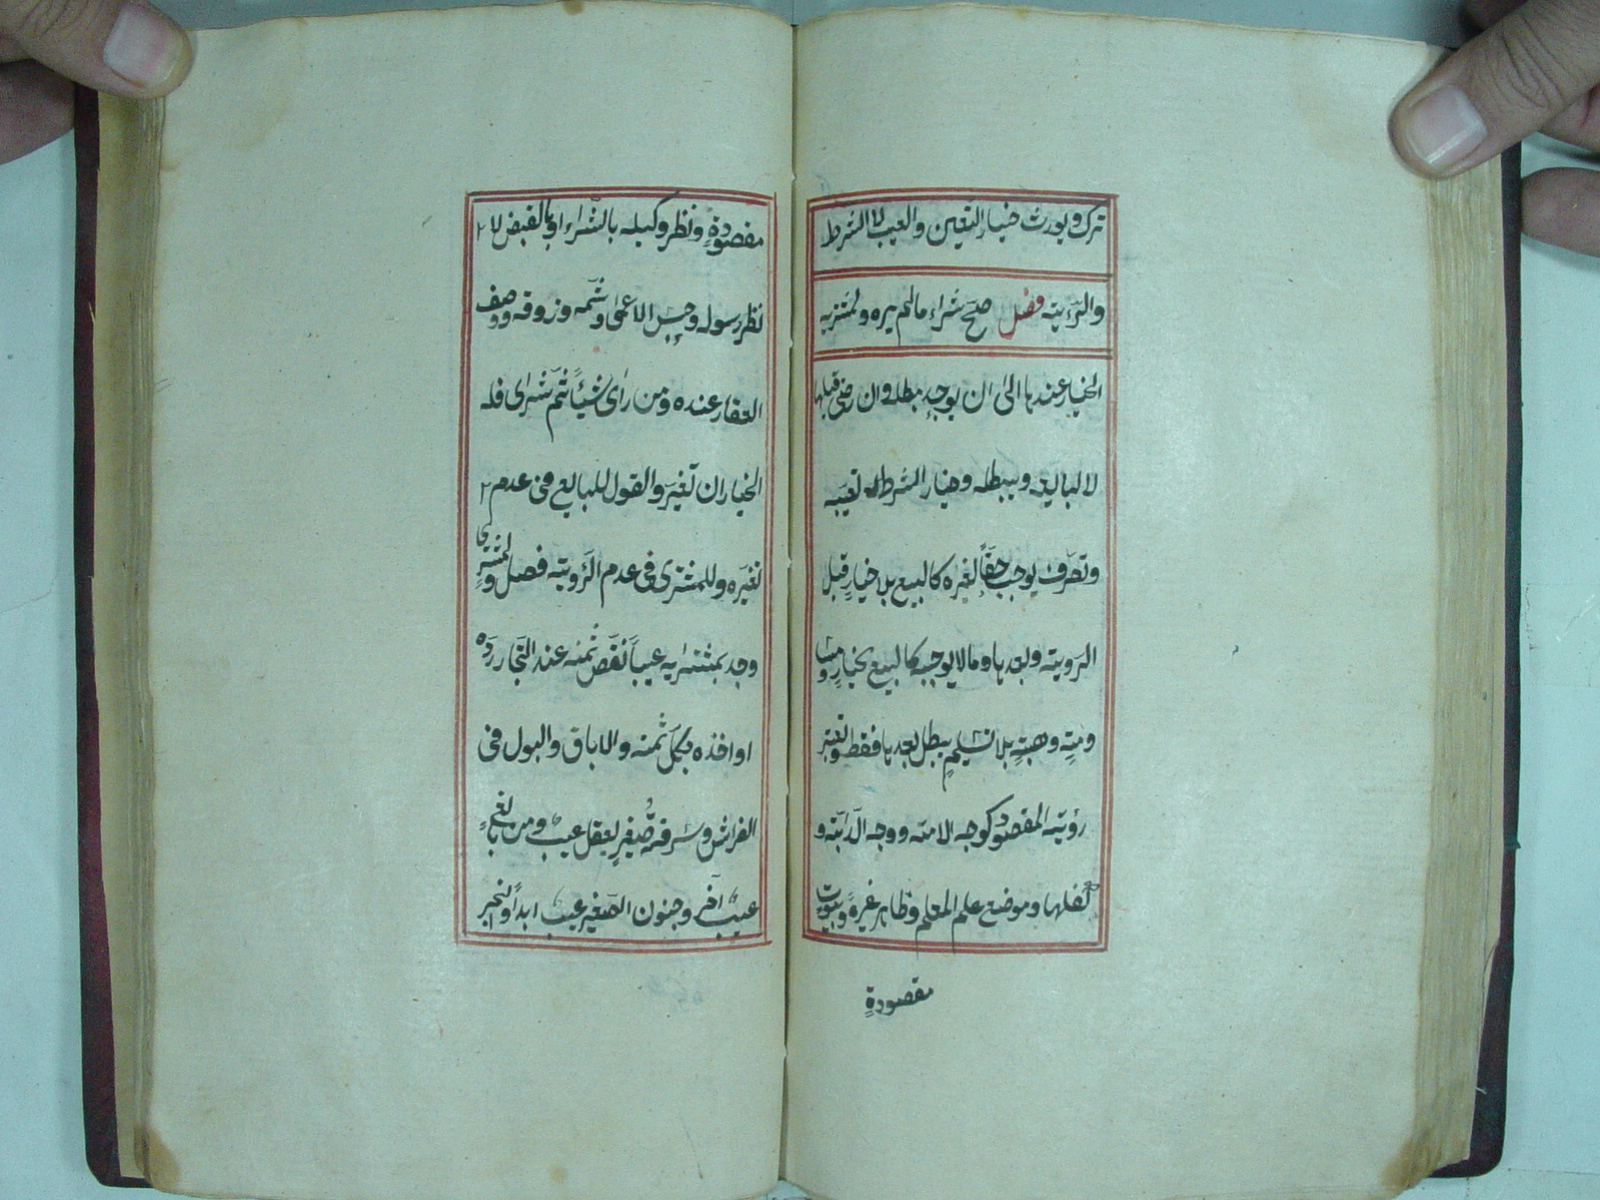 ترك ويورث خيار التعيين والعيب لا الشرط
والرّؤيته فصل صحّ شراء ما لم يره ولمشتريه
الخيار عندها الى ان يوجد مبطله وان رضى قبلها
لا لبايعه ويبطله وخيار الشرط تعيبه
وتصرّف يوجب حقّاً لغيره كالبيع بلا خيار قبل
الرويته وبعدها وما لا يوجبه كالبيع بخيارٍ
وهبتهٍ بلا تسليمٍ يبطل بعدها فقط
رؤيته المقصود كوجه الامته ووجه الدّابّته و
كفلها وموضع علم المعلم وظاهر غيره وبيوت
مقصودةٍ
مقصودةٍ ونظر وكيله بالشّراء او بالقبض لا
نظر رسوله وجسّ الاعمى وشمّه وذوقه ووصف
العقار عنده ومن راى شيئاً ثمّ شراى فله
الخيار ان تغيّر والقول للبايع فى عدم
تغيّره وللمشترى فى عدم الرّويته فصل ولمشترٍ
وجد بمشتراىه عيباً نقّص ثمنه عند التجّار ردّه
او اخذه بكلّ ثمنه والاباق والبول فى
الفراش وسرقة صغيرٍ يعقل عيبٌ ومن بالغٍ
عيبٌ آخر وجنون الصّغير عيبٌ ابداً والبخر